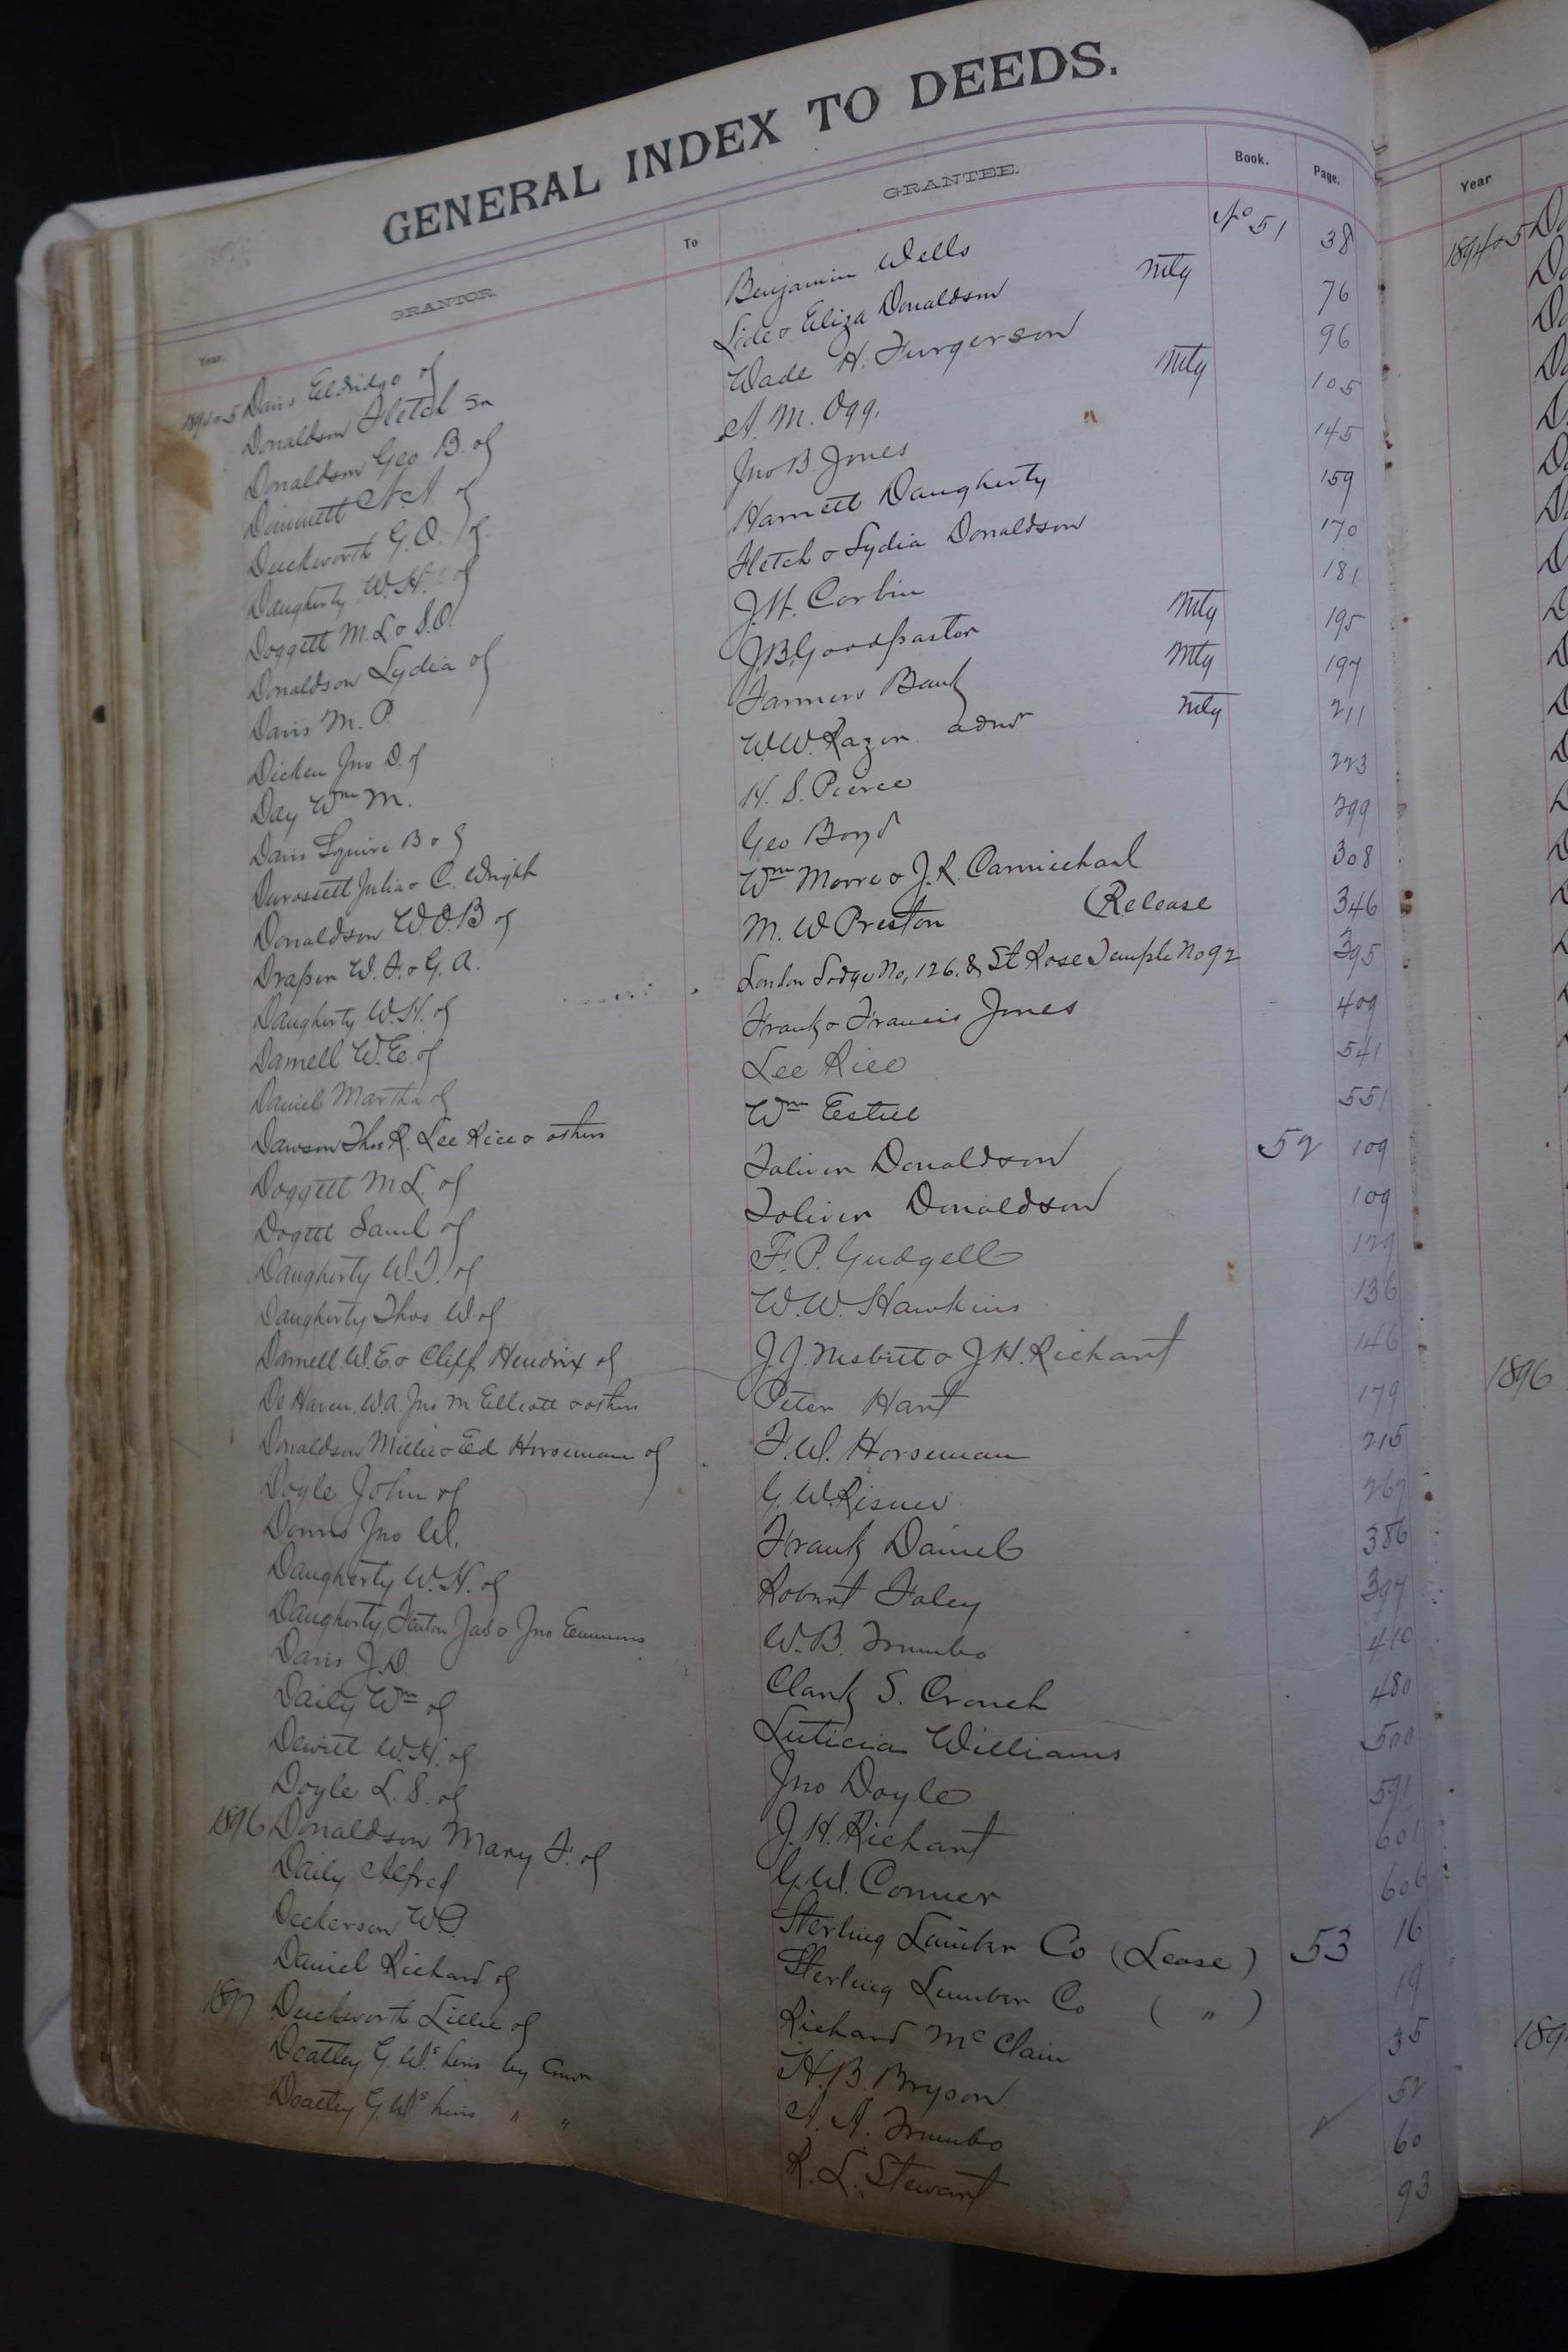 GENERAL INDEX TO DEEDS.
Year. GRANTOR. To GRANTEE. Book. Page. Year
1894 & 5 Davis Eldridge of Benjamin Wells No 51 38 1894 & 5
Donaldson Fletch Sr Lide & Eliza Donaldson Mtg 76
Donaldson Geo B. of Wade H. Furgerson 96
Dimmett A. A. of A. M. Ogg. Mtg 105
Duckworth G. O. of Jno B. Jones 145
Daugherty W. H. of Harriett Daugherty 159
Doggett M. L. & S. O. Fletch & Lydia Donaldson 170
Donaldson Lydia of J. H. Corbin 181
Davis M. P. J. B. Goodpaster Mtg 195
Dicken Jno D. of Farmers Bank Mtg 197
Day Wm M. W. W. Razor admr Mtg 211
Davis Squire B of H. S. Pierce 223
Durossett Julia & C. Wright Geo Boyd 299
Donaldson W. O. B of Wm Moore & J. R. Carmichael 308
Draper W. F. & G. A. M. W Preston (Release 346
Daugherty W. H. of London Lodge No, 126. & St Rose Temple No 92 395
Darnell W. E. of Frank & Francis Jones 409
Daniel Martha of Lee Rice 541
Dawson Thos R. Lee Rice & others Wm Estill 551
Doggett M L. of Toliver Donaldson 52 109
Dogett Saml of Toliver Donaldson 109
Daugherty W. T. of F. P. Gudgell 129
Daugherty Thos W. of W. W. Hawkins 136
Darnell W. E. & Cliff Hendrix of J. J. Nesbitt & J. H. Richart 146 1896
De Haven. W. A. Jno M Elliott & others Peter Hart 179
Donaldson Millie & Ed Horseman of F. W. Horseman 215
Doyle John of G. W. Risner 267
Downs Jno W. Frank Daniel 386
Daugherty W. H. of Robert Foley 397
Daugherty, Fenton Jas & Jno Emmons W. B. Trumbo 410
Davis J. D. Clark S. Crouch 480
Daily Wm of Luticia Williams 500
Dewitt W. H. of Jno Doyle 591
Doyle L. S. of J. H. Richart 601
1896 Donaldson Mary F. of G. W. Conner 606
Daily Alfred Sterling Lumber Co (Lease) 53 16
Dickerson W P. Sterling Lumber Co ( " ) 19
Daniel Richard of Richard McClain 35
1897 Duckworth Lillie of H. B. Bryson 52
Deatley G. W's heirs by Comr A. A. Trumbo 60
Deatley G. W's heirs " " R. L. Stewart 93